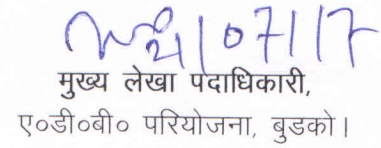 21/07/17
मुख्य लेखा पदाधिकारी,
ए०डी०बी० परियोजना, बुडको।